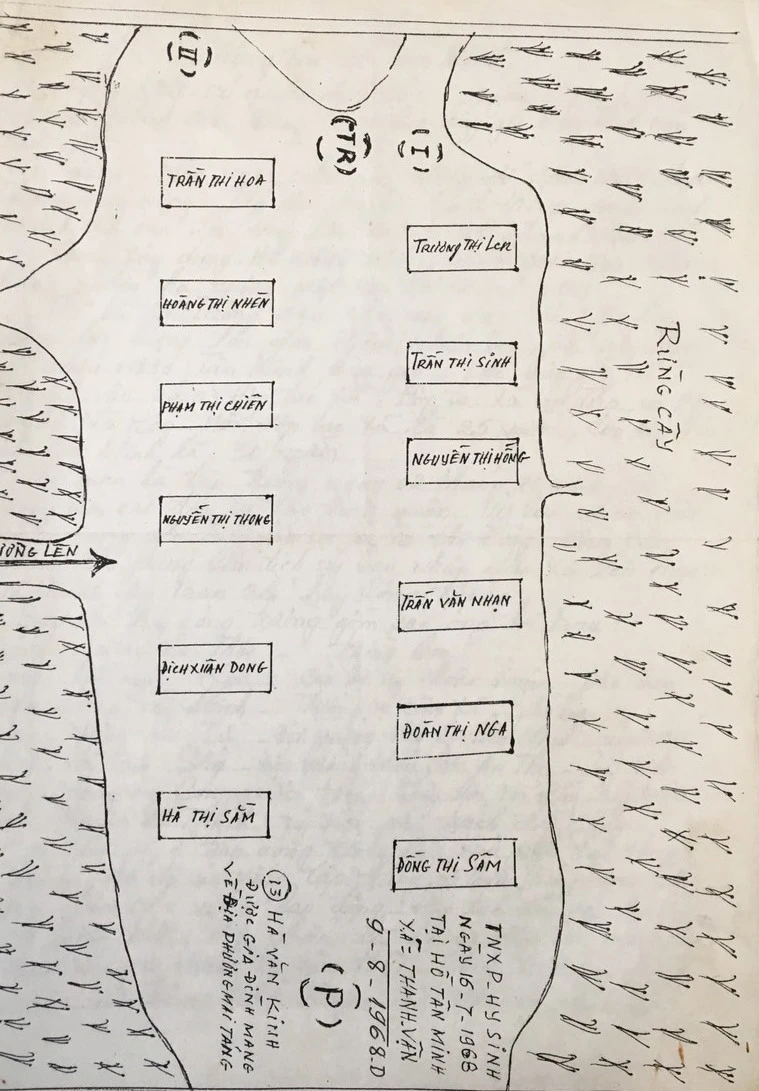 (II)
(TR)
(I)
TRẦN THỊ HOA
HOÀNG THỊ NHẾN
PHẠM THỊ CHIẾN
NGUYỄN THỊ THONG
ĐỊCH XUÂN DONG
HÀ THỊ SẮM
Trương Thị Len
TRẦN THỊ SINH
NGUYỄN THỊ HỒNG
TRẦN VĂN NHẠN
ĐOÀN THỊ NGA
ĐỒNG THỊ SÂM
RỪNG CÂY
LÊN
TNXP-HY SINH
NGÀY 16-7-1968
TẠI HỒ TÂN MINH
XÃ: THANH-VÂN
9-8-1968.D
(P)
(13) HÀ VĂN KINH
ĐƯỢC GIA ĐÌNH MANG
VỀ ĐỊA PHƯƠNG MAI TANG